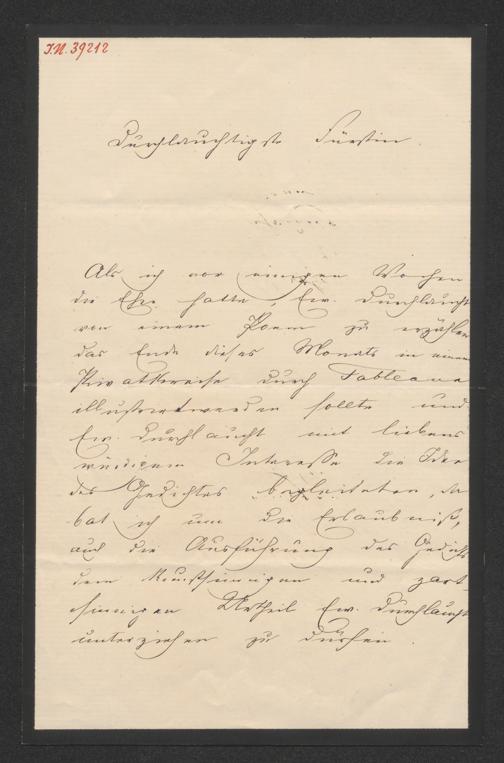 I.N. 39212
Durchlauchtigste Fürstin.
Als ich vor einigen Wochen
die Ehre hatte, Ew. Durchlaucht
von einem Poem zu erzählen
das Ende dieses Monats in einem
Privatkreise durch Tableaux
illustrirt werden sollte und
Ew. Durchlaucht mit liebens
würdigem Interesse die Idee
des Gedichtes begleiteten, da
bat ich um die Erlaubniß,
auch die Ausführung des Gedichts
dem kunstsinnigen und zart-
sinnigen Urtheil Ew. Durchlaucht
unterziehen zu dürfen.